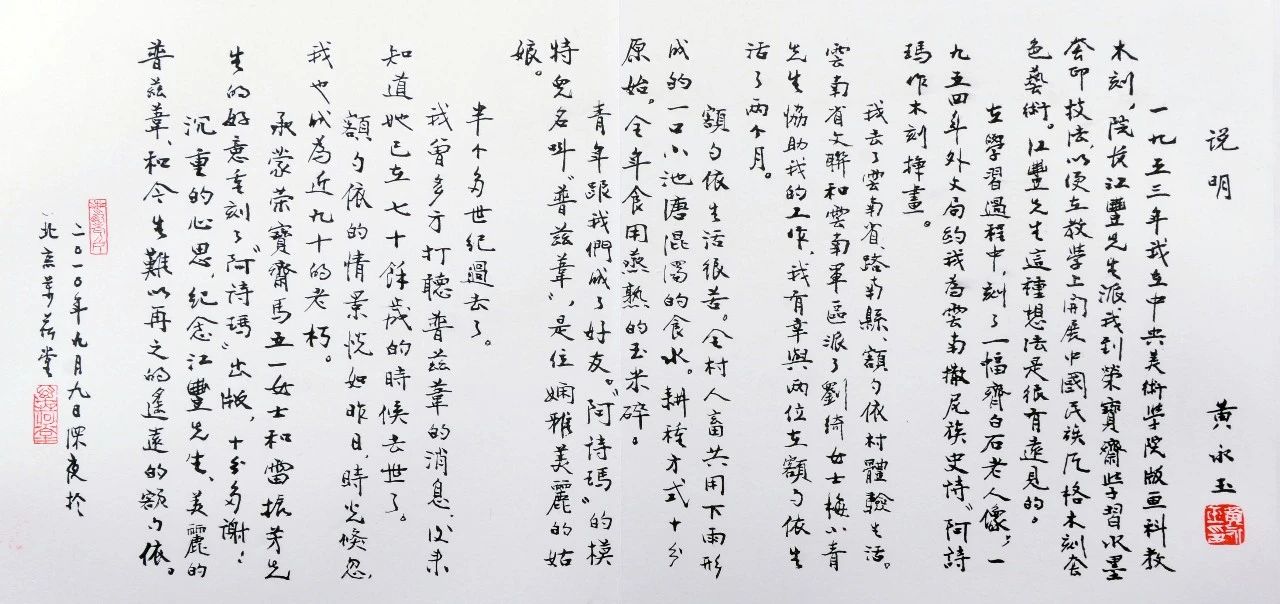 说明 黄永玉
一九五三年我在中央美術学院版画科教
木刻,院長江豐先生派我到榮寶齋学習水墨
套印技法,以便在教学上開展中國民族风格木刻套
色藝術。江豐先生這種想法是很有遠見的。
在學習過程中,刻了一幅齊白石老人像;一
九五四年外文局約我為雲南撒尼族史诗“阿詩
瑪作木刻揷畫。
我去了雲南省、路南縣、額勺依村體驗生活。
雲南省文聯和雲南軍區派了劉綺女士梅小青
先生協助我的工作,我有幸與两位在額勺依生
活了两个月。
額勺依生活很苦。全村人畜共用下雨形
成的一口小池溏混濁的食水。耕種方式十分
原始,全年食用蒸熟的玉米碎。
青年跟我們成了好友。“阿诗瑪”的模
特兒名叫“普兹葦”,是位嫻雅美麗的姑
娘。
半个多世纪過去了。
我曾多方打聽普兹葦的消息,後来
知道她已在七十餘歲的時候去世了。
額勺依的情景恍如昨日,時光倏忽,
我也成為近九十的老朽。
承蒙荣寶齋馬五一女士和雷振芳先
生的好意重刻了“阿诗瑪”出版,十分多謝!
沉重的心思,纪念江豐先生、美麗的
普兹葦、和今生難以再之的遙遠的額勺依。
二〇一〇年九月九日深夜於
北京萬荷堂